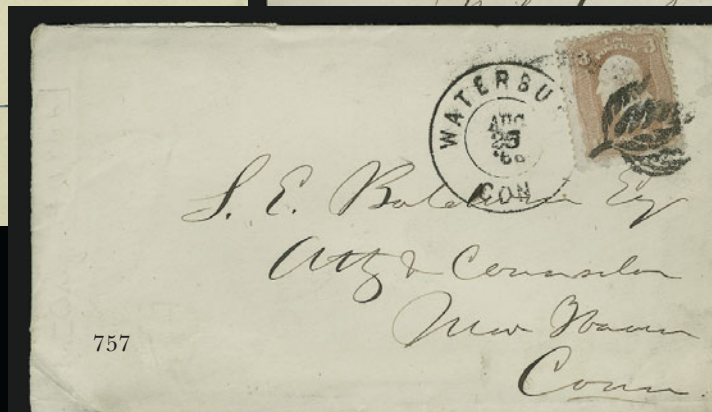 WATERBU
AUG
25
'66
CON
3 U.S. POSTAGE 3
S. E. Baldwin Esq
Atty & Counselor
New Haven
Conn.
757